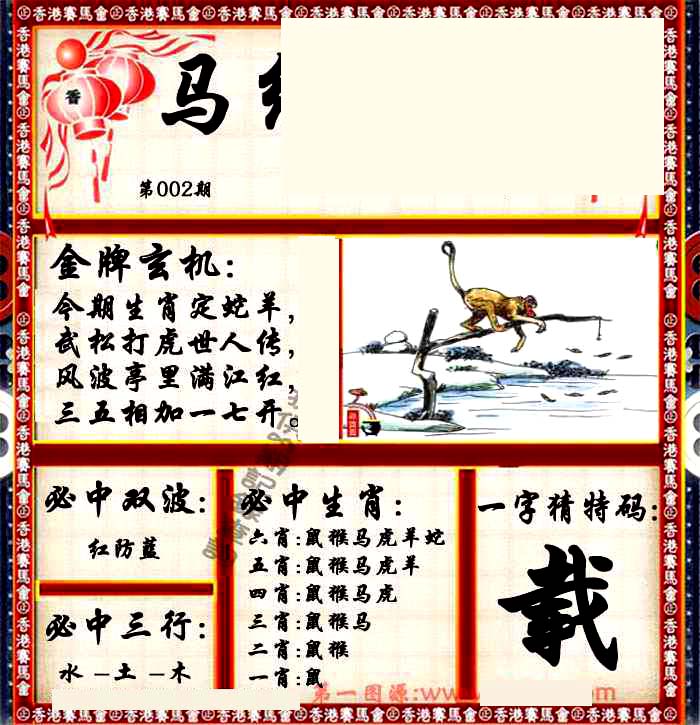 香港賽馬會
马
第002期
金牌玄机：
今期生肖定蛇羊，
武松打虎世人传，
风波亭里满江红，
三五相加一七开。
必中双波：
红防蓝
必中三行：
水－土－木
必中生肖：
六肖:鼠猴马虎羊蛇
五肖:鼠猴马虎羊
四肖:鼠猴马虎
三肖:鼠猴马
二肖:鼠猴
一肖:鼠
一字猜特码：
载
第一图源:www
com